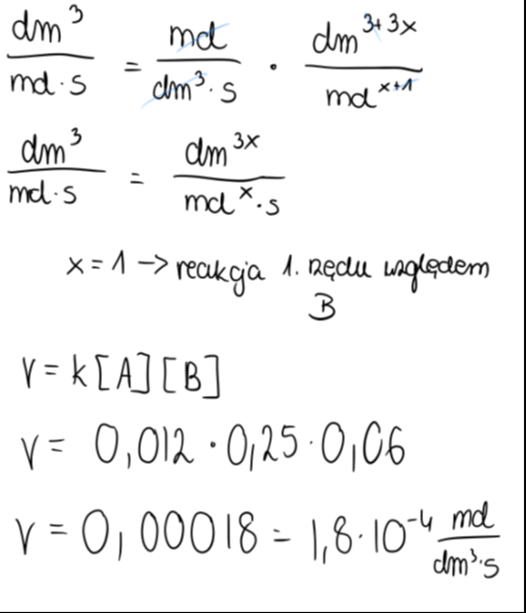 dm³/mol·s = mol/dm³·s · dm^(3+3x)/mol^(x+1)
dm³/mol·s = dm^(3x)/mol^x·s
x = 1 → reakcja 1. rzędu względem
B
V = k[A][B]
V = 0,012 · 0,25 · 0,06
V = 0,00018 = 1,8·10⁻⁴ mol/dm³·s